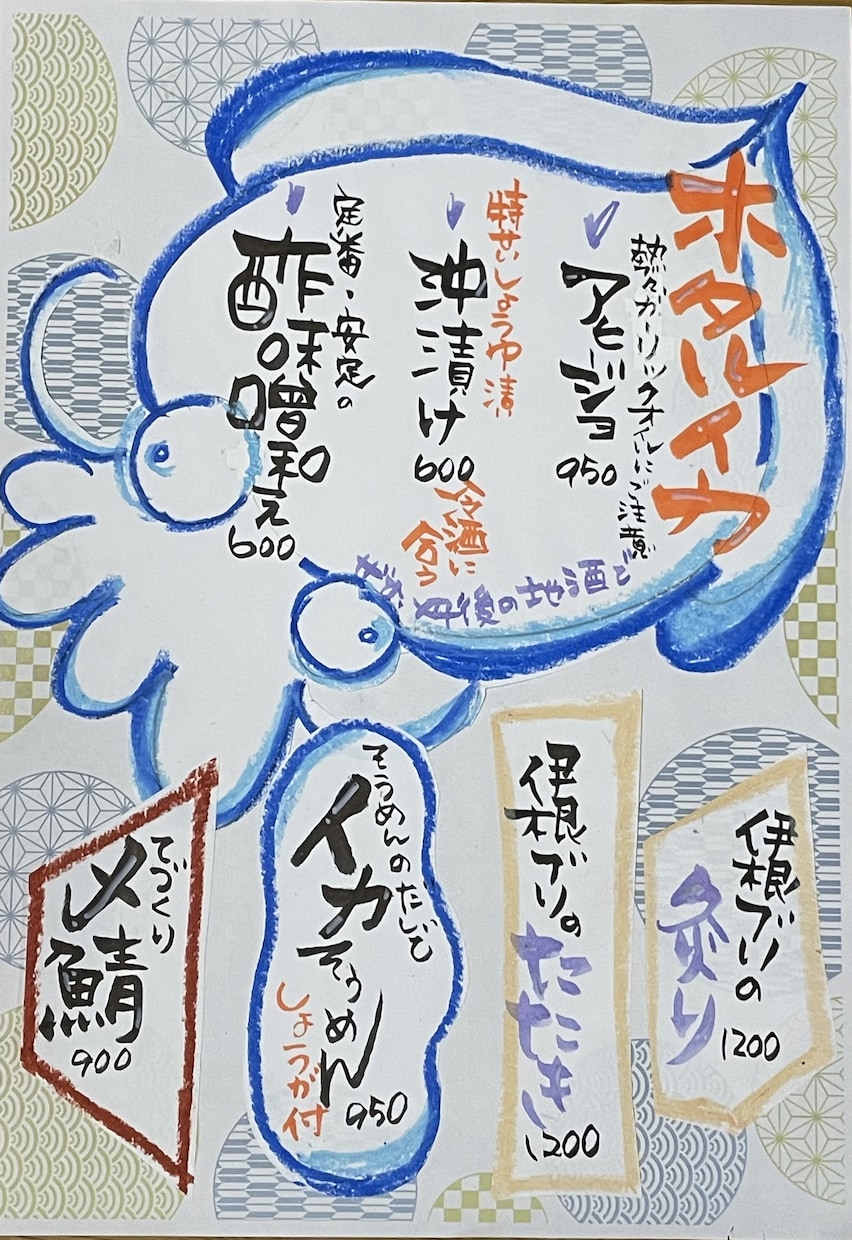 ホタルイカ
熱々ガーリックオイルにご注意
アヒージョ
950
特せいしょうゆ漬
沖漬け
600
冷酒に
合う
定番・安定の
酢味噌和え
600
丹後の地酒で
伊根ブリの
炙り
1200
伊根ブリの
たたき
1200
そうめんのだしで
イカそうめん
950
しょうが付
てづくり
〆鯖
900